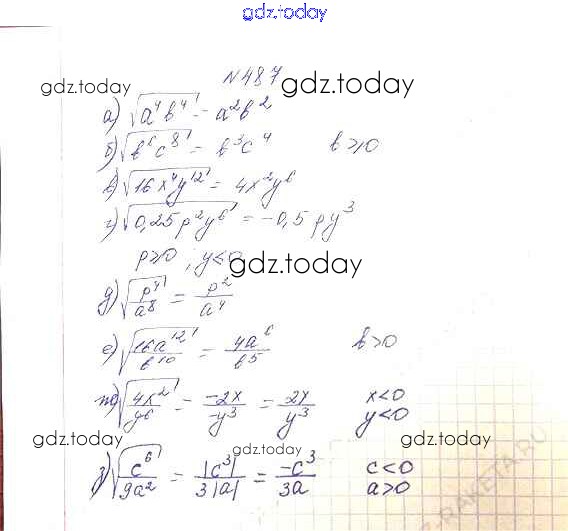 gdz.today
N 487
gdz.today gdz.today
а) √(a⁴b⁴) = a²b²
б) √(b⁶c⁸) = b³c⁴ b≥0
в) √(16x⁴y¹²) = 4x²y⁶
г) √(0,25p²y⁶) = -0,5py³
p≥0, y<0
gdz.today
д) √(p⁴/a⁸) = p²/a⁴
е) √(16a¹²/b¹⁰) = 4a⁶/b⁵ b>0
ж) √(4x²/y⁶) = -2x/-y³ = 2x/y³ x<0
y<0
gdz.today gdz.today gdz.today
з) √(c⁶/9a²) = |c³|/3|a| = -c³/3a c<0
a>0
gdz.today